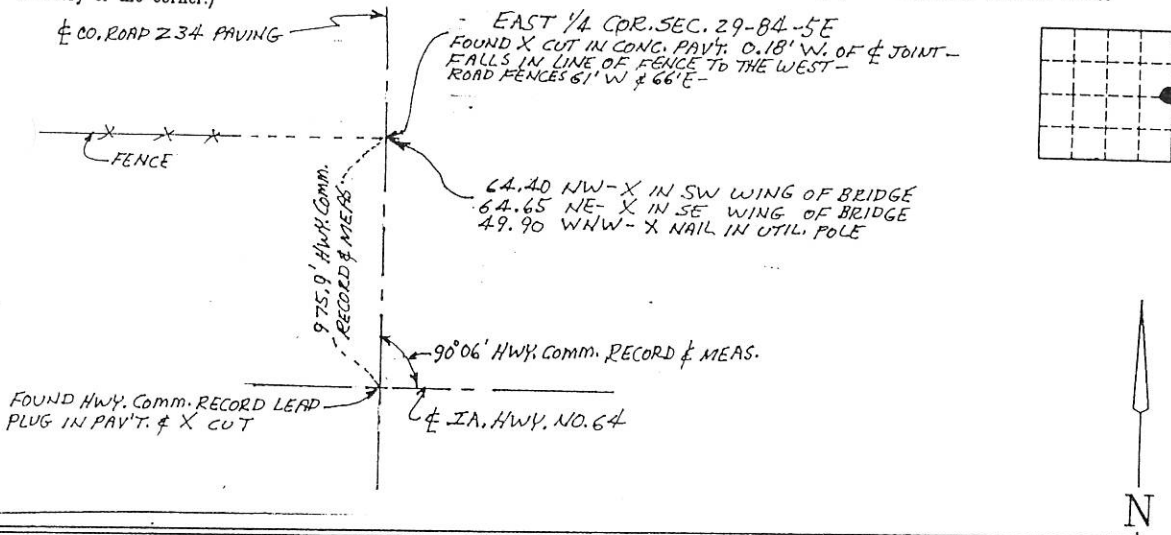 ℄ CO. ROAD Z34 PAVING
EAST 1/4 COR. SEC. 29-84-5E
FOUND X CUT IN CONC. PAV'T. 0.18' W. OF ℄ JOINT-
FALLS IN LINE OF FENCE TO THE WEST-
ROAD FENCES 61' W & 66' E-
FENCE
64.40 NW-X IN SW WING OF BRIDGE
64.65 NE- X IN SE WING OF BRIDGE
49.90 WNW- X NAIL IN UTIL. POLE
975.9' HWY. COMM.
RECORD & MEAS.
90°06' HWY. COMM. RECORD & MEAS.
FOUND HWY. COMM. RECORD LEAD
PLUG IN PAV'T. & X CUT
℄ IA. HWY. NO. 64
N